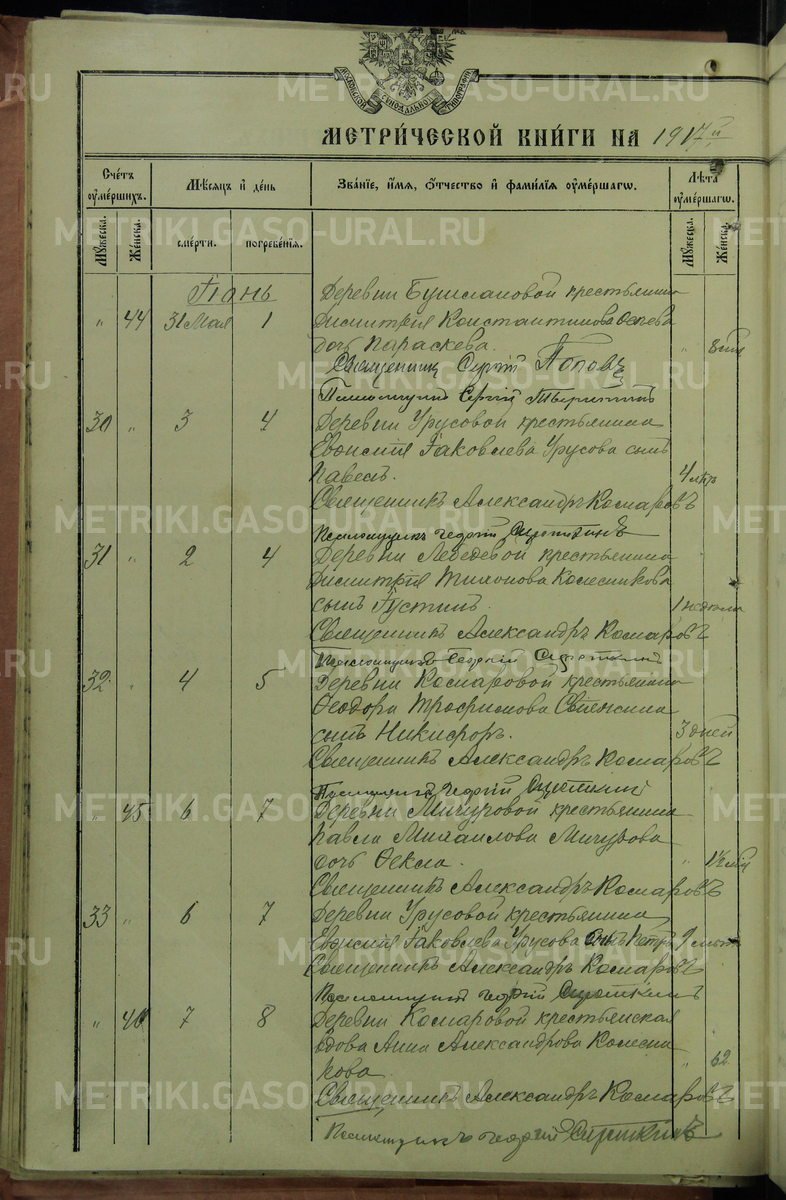 МОСКОВСКОЙ СИНОДАЛЬНОЙ ТИПОГРАФІИ
МЕТРИ́ЧЕСКОЙ КНИ́ГИ НА 1917й
Сче́тъ оумершихъ.
Мѣсяцъ и день
Званіе, имя, отчество и фамилія оумершагѡ.
Лѣта оумершагѡ.
Мужеска.
Женска.
смерти.
погребенія.
Мужеска.
Женска.
Іюнь
Деревни Бушлановой крестьянина
" 44 31 Мая 1 Димитрія Константинова
дочь Параскева. " 8
Священникъ Сергій Поповъ
Псаломщикъ Сергій
30 " 3 4 Деревни Урусовой крестьянина
Евдокима Іаковлева Урусова сынъ
Павелъ. 4
Священникъ Александръ Комаровъ
Псаломщикъ Георгій Сироткинъ
31 " 2 4 Деревни Лебедевой крестьянина
Димитрія Тихонова Колесникова
сынъ Іустинъ. 1 недели
Священникъ Александръ Комаровъ
Псаломщикъ Георгій Сироткинъ
32 " 4 5 Деревни Комаровой крестьянина
Феодора Трофимова
сынъ Никифоръ. 3 дней
Священникъ Александръ Комаровъ
Псаломщикъ Георгій Сироткинъ
" 45 6 7 Деревни Мичуровой крестьянина
Павла Михаилова Мичурова
дочь Фекла. "
Священникъ Александръ Комаровъ
33 " 6 7 Деревни Урусовой крестьянина
Іаковлева Урусова сынъ Петръ 9
Священникъ Александръ Комаровъ
Псаломщикъ Георгій Сироткинъ
" 46 7 8 Деревни Комаровой крестьянская
вдова Анна Александрова Колесни
кова. " 62
Священникъ Александръ Комаровъ
Псаломщикъ Георгій Сироткинъ
METRIKI.GASO-URAL.RU